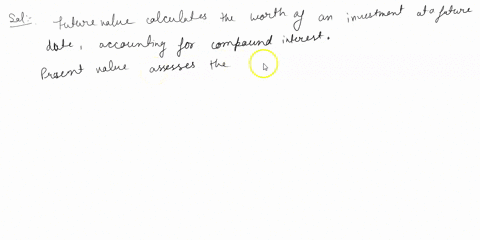 Sol:- Future value calculates the worth of an investment at a future
date, accounting for compound interest.
Present value assesses the